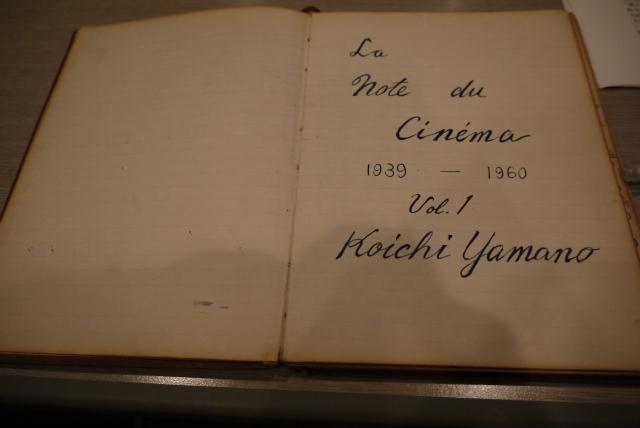 La
Note du
Cinéma
1939 — 1960
Vol. 1
Koichi Yamano